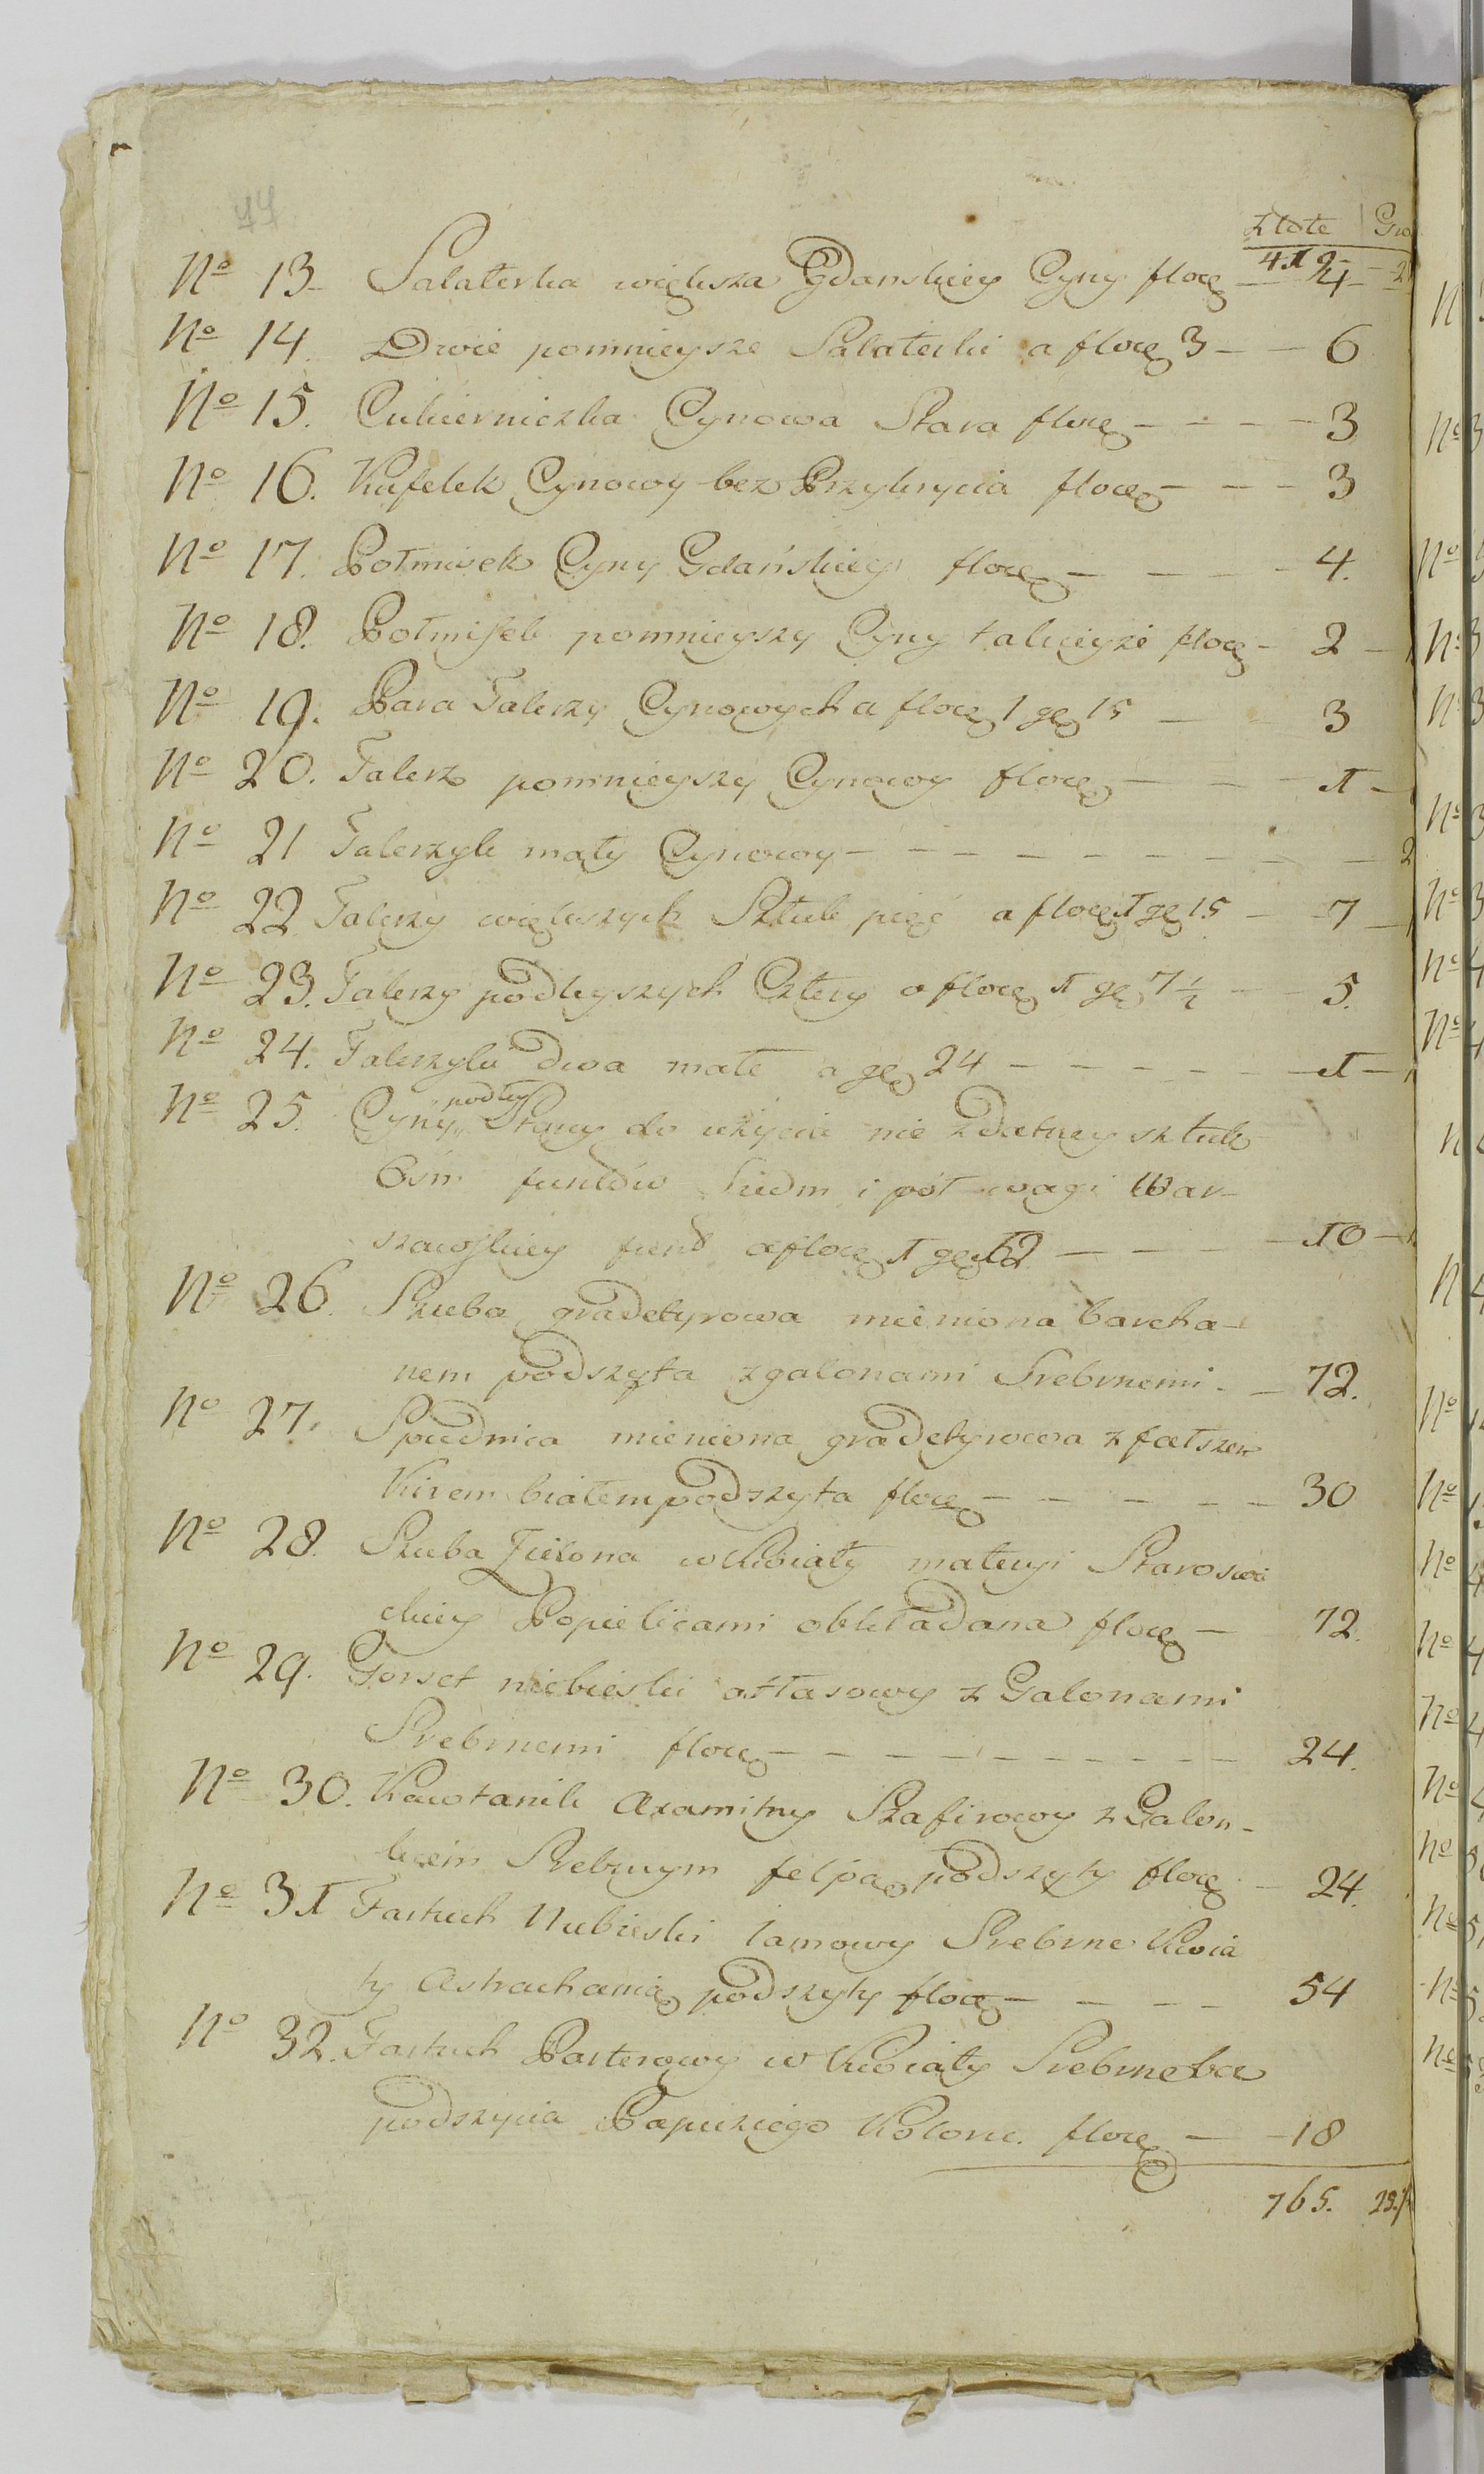 44
złote | Gro
412 - 2
No 13 Salaterka większa Gdanskiey Cyny floren — 4
No 14. Dwie pomnieysze Salaterki a floren 3 — — 6
No 15. Cukierniczka Cynowa Stara floren - - - - 3
No 16. Kufelek Cynowy bez Przykrycia floren - - - 3
No 17. Połmisek Cyny Gdańskiey floren — — — - 4.
No 18. Połmisek pomnieyszy Cyny takieyże floren - 2 —
No 19. Para Talerzy Cynowych a floren 1 gr 15 — — 3
No 20. Talerz pomnieyszy Cynowy floren — — — 1 -
No 21 Talerzyk mały Cynowy - - - - - - - - - - 2
No 22 Talerzy większych Sztuk pięć a floren 1 gr 15 — 7 —
No 23. Talerzy podleyszych Cztery a floren 1 gr 7 1/2 — — 5.
No 24. Talerzyki dwa małe a gr 24 — — — — — — 1 —
podłey
No 25. Cyny Starey do użycia nie zdatney sztuk
Ośm funtów Siedm i pół wagi War-
szawskiey funt a floren 1 gr 12 — — — 10 —
No 26. Szuba gradetyrowa mieniona barcha-
nem podszyta z galonami Srebrnemi. — 72.
No 27. Spudnica mieniona gradetyrowa z fałszem
Kirem białem podszyta floren - - - - - - 30
No 28. Szuba Zielona w Kwiaty materyi Staroświe
ckiey Popielicami obkładana floren — 72.
No 29. Gorset niebieski atłasowy z Galonami
Srebrnemi floren - - - - - - - - - - 24.
No 30. Kawtanik Axamitny Szafirowy z Galon-
kiem Srebrnym felpą podszyty floren — 24.
No 31 Fartuch Niebieski lamowy Srebrne Kwia
ty Astrachanią podszyty floren — — — — 54
No 32. Fartuch Parterowy w Kwiaty Srebrne bez
podszycia Papuziego Koloru. floren — — 18
765. 29.